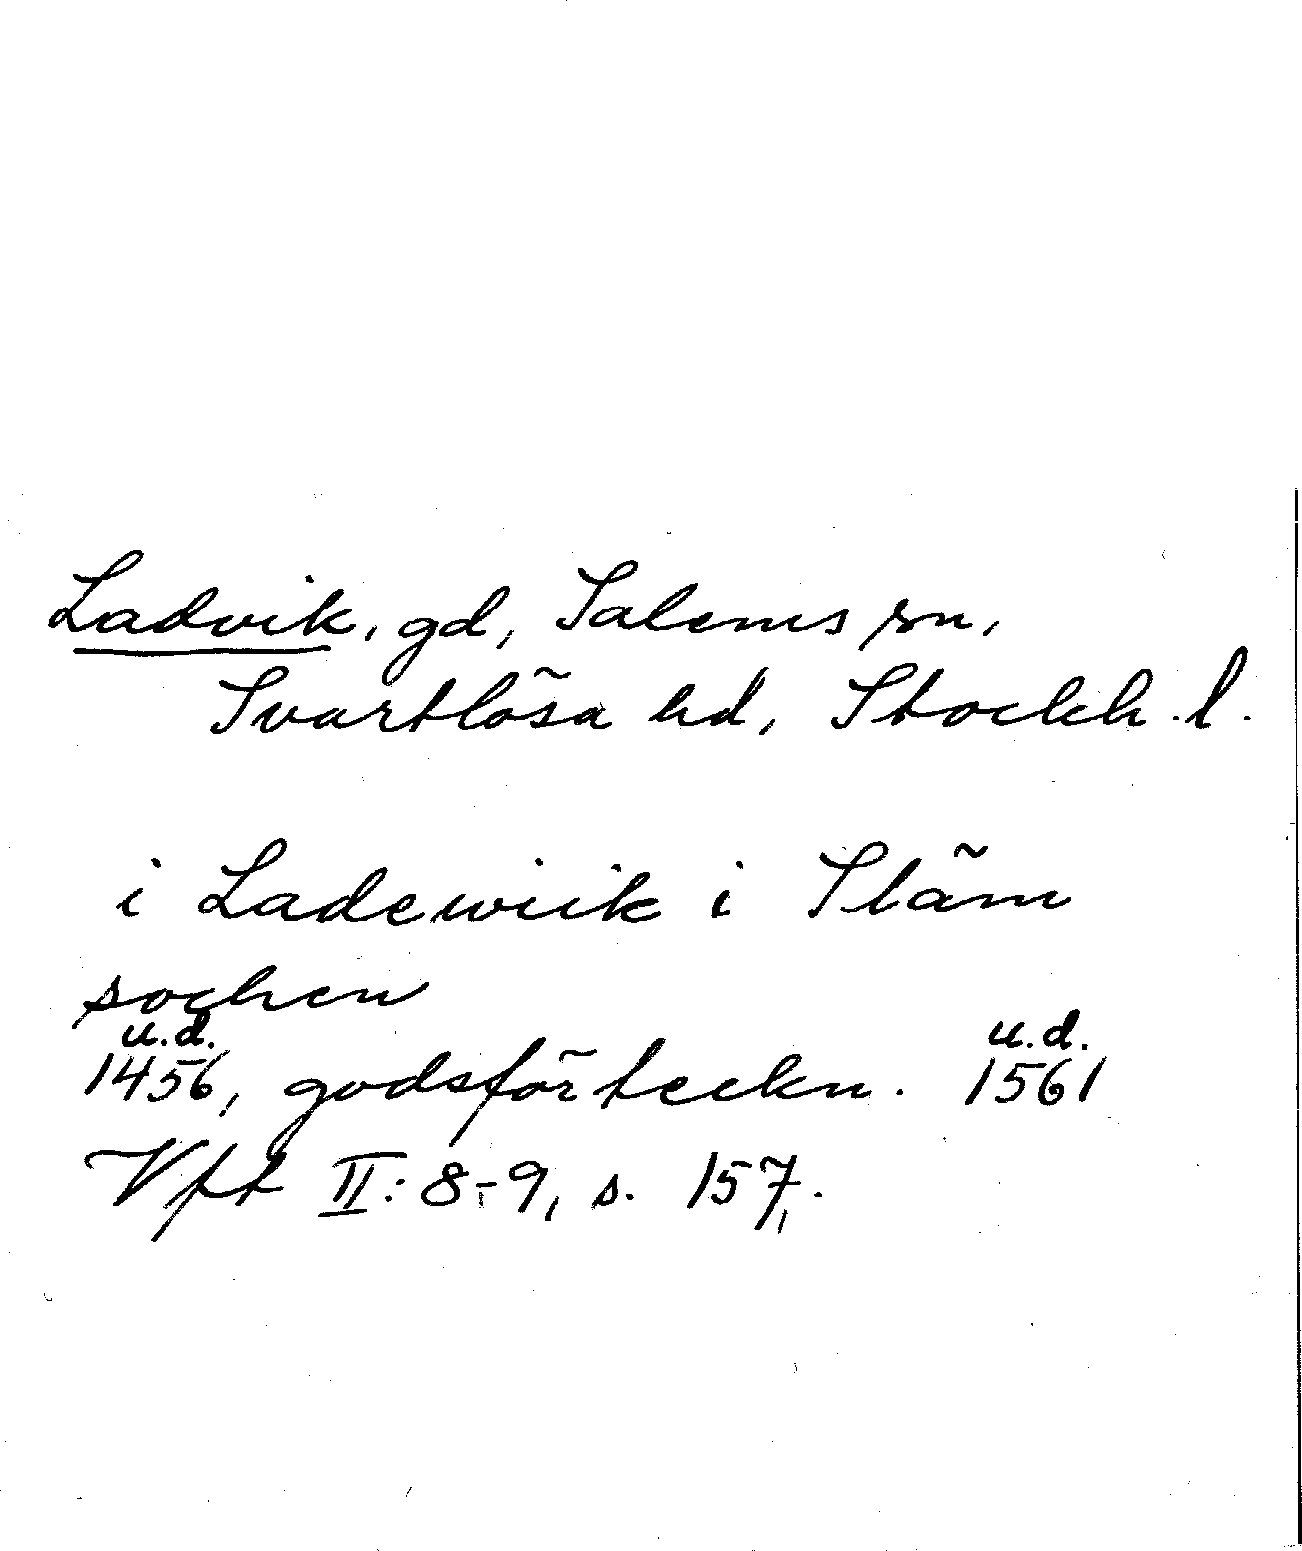 Ladvik, gd, Salems sn,
Svartlösa hd, Stockh. l.
i Ladewiik i Släm
sochen
u.d. u.d.
1456, godsförteckn. 1561
Vft II: 8-9, s. 157.